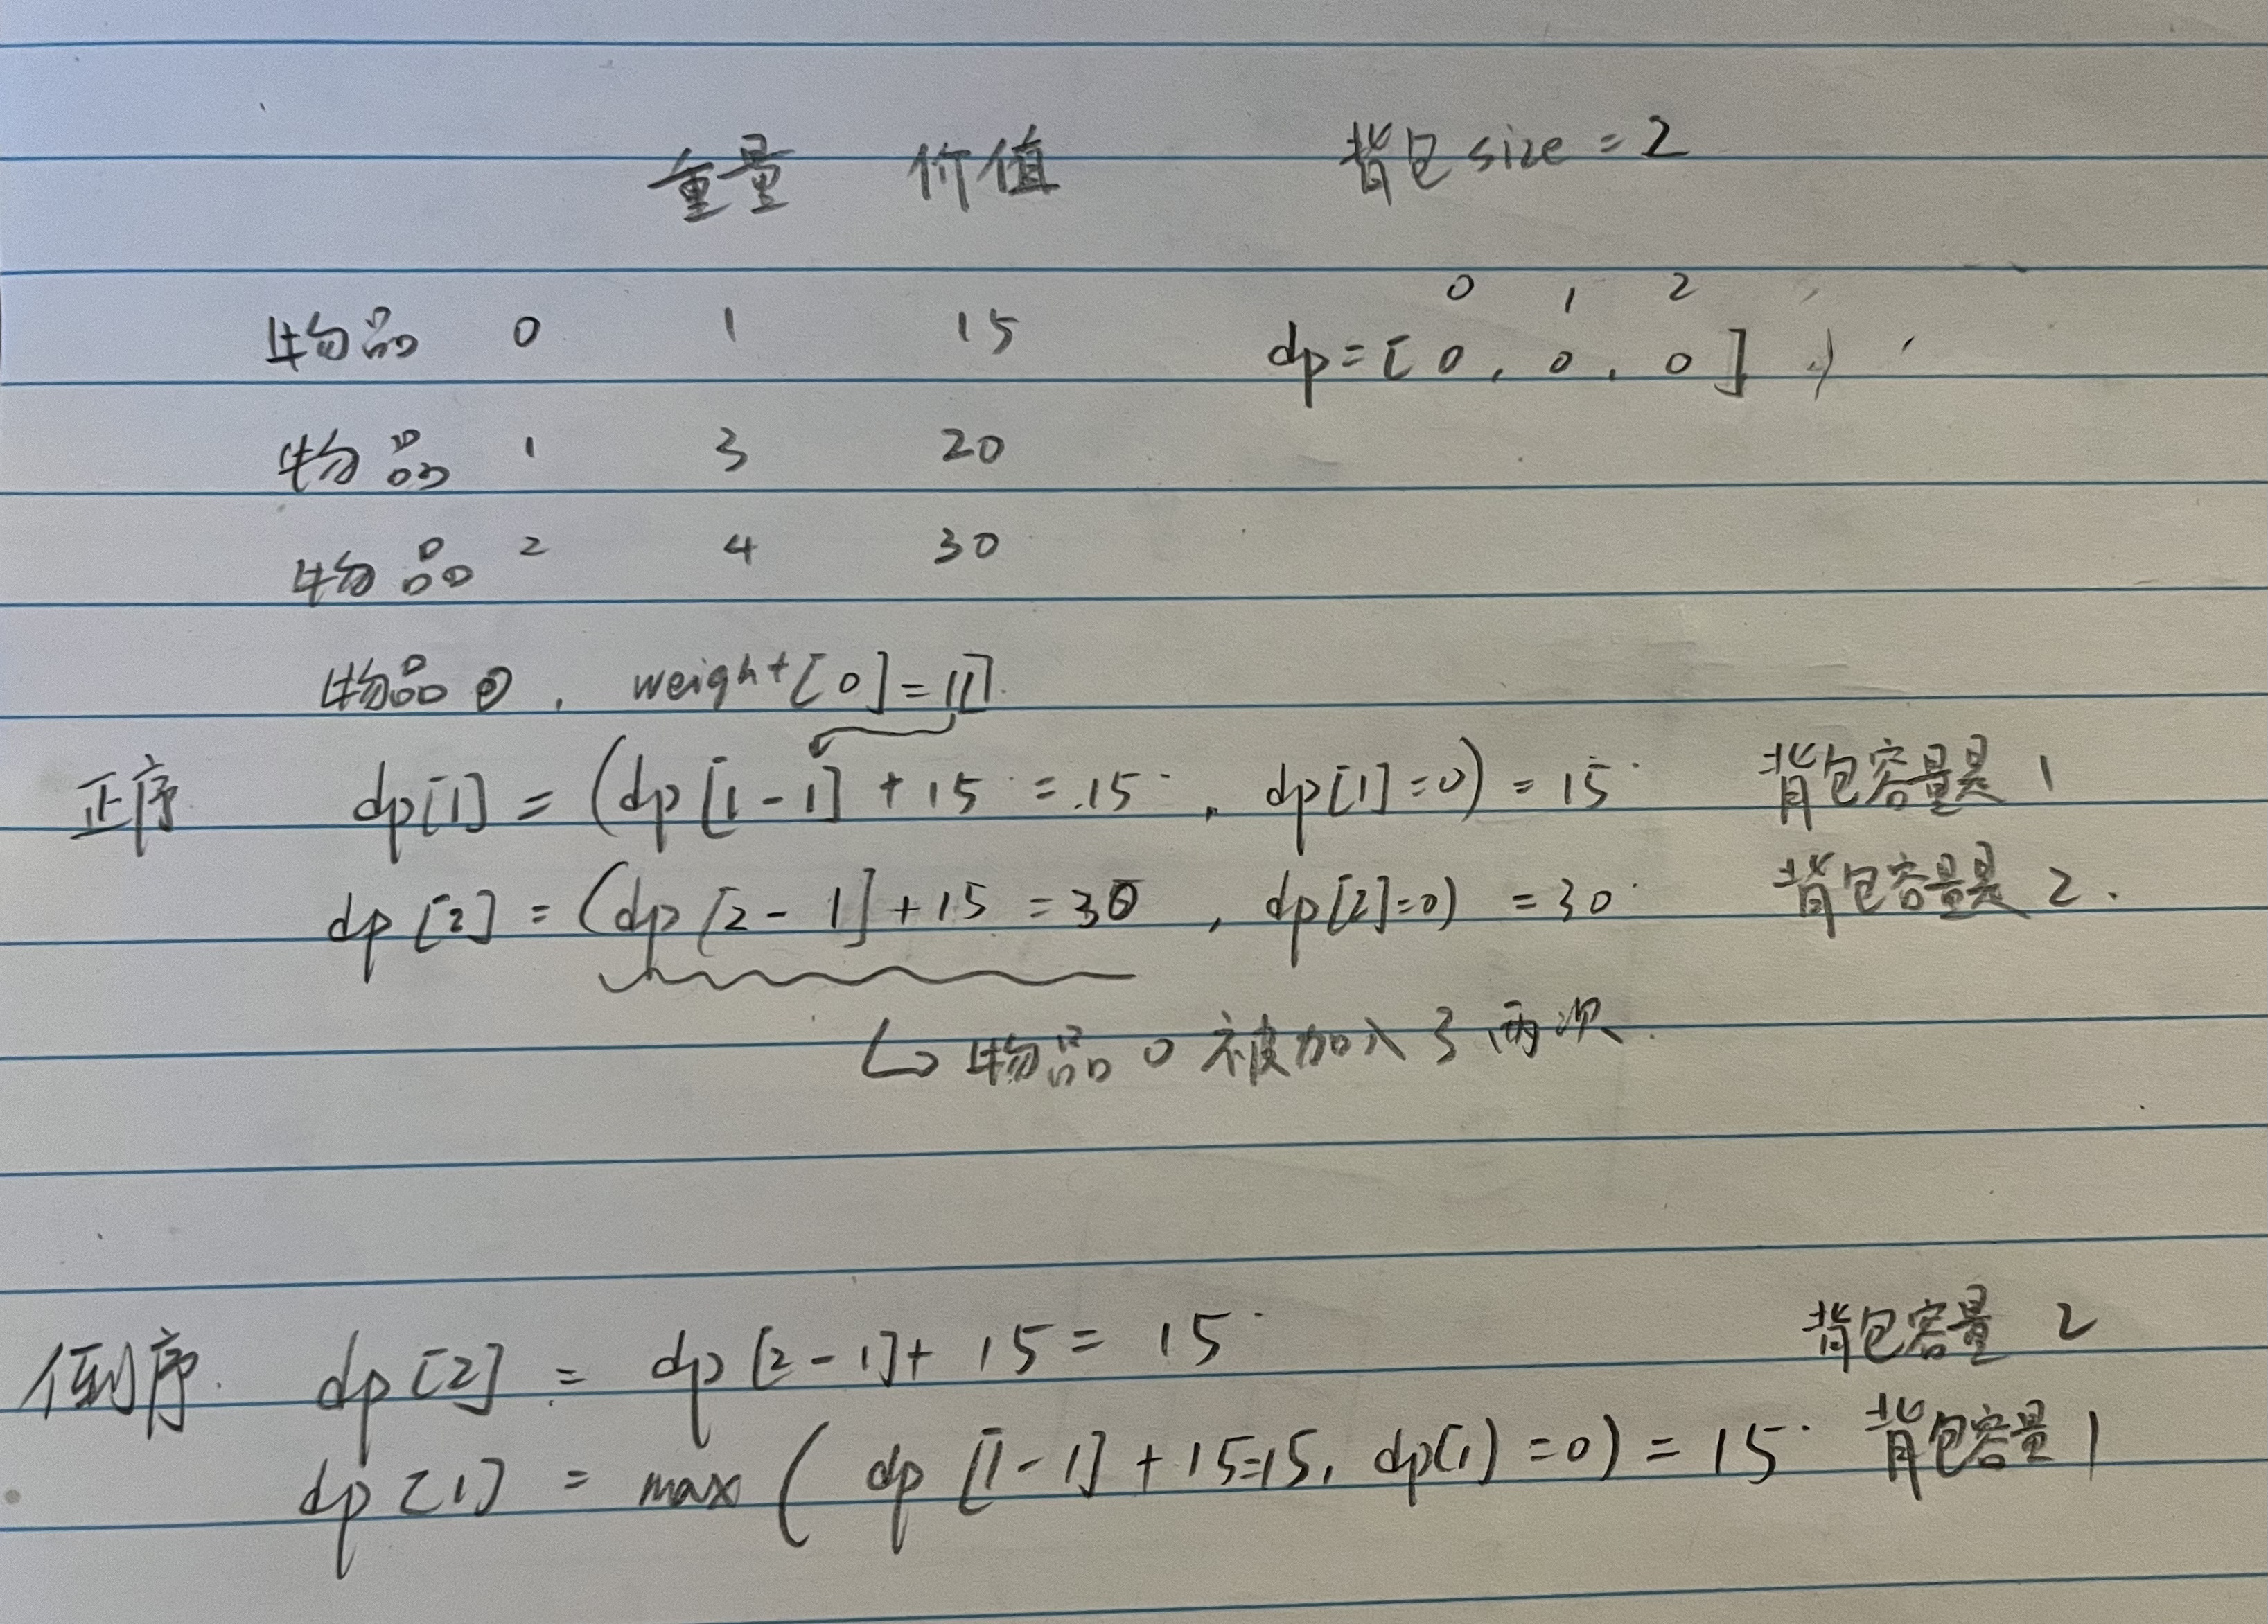 重量 价值 背包size = 2
0 1 2
物品 0 1 15 dp = [ 0 , 0 , 0 ]
物品 1 3 20
物品 2 4 30
物品 0 , weight[0] = 1
正序 dp[1] = (dp[1-1] + 15 = 15 , dp[1]=0) = 15 背包容量是 1
dp[2] = (dp[2-1] + 15 = 30 , dp[2]=0) = 30 背包容量是 2.
↳ 物品 0 被加入了两次.
倒序. dp[2] = dp[2-1] + 15 = 15 背包容量 2
dp[1] = max ( dp [1-1] + 15=15, dp(1) = 0) = 15 背包容量 1